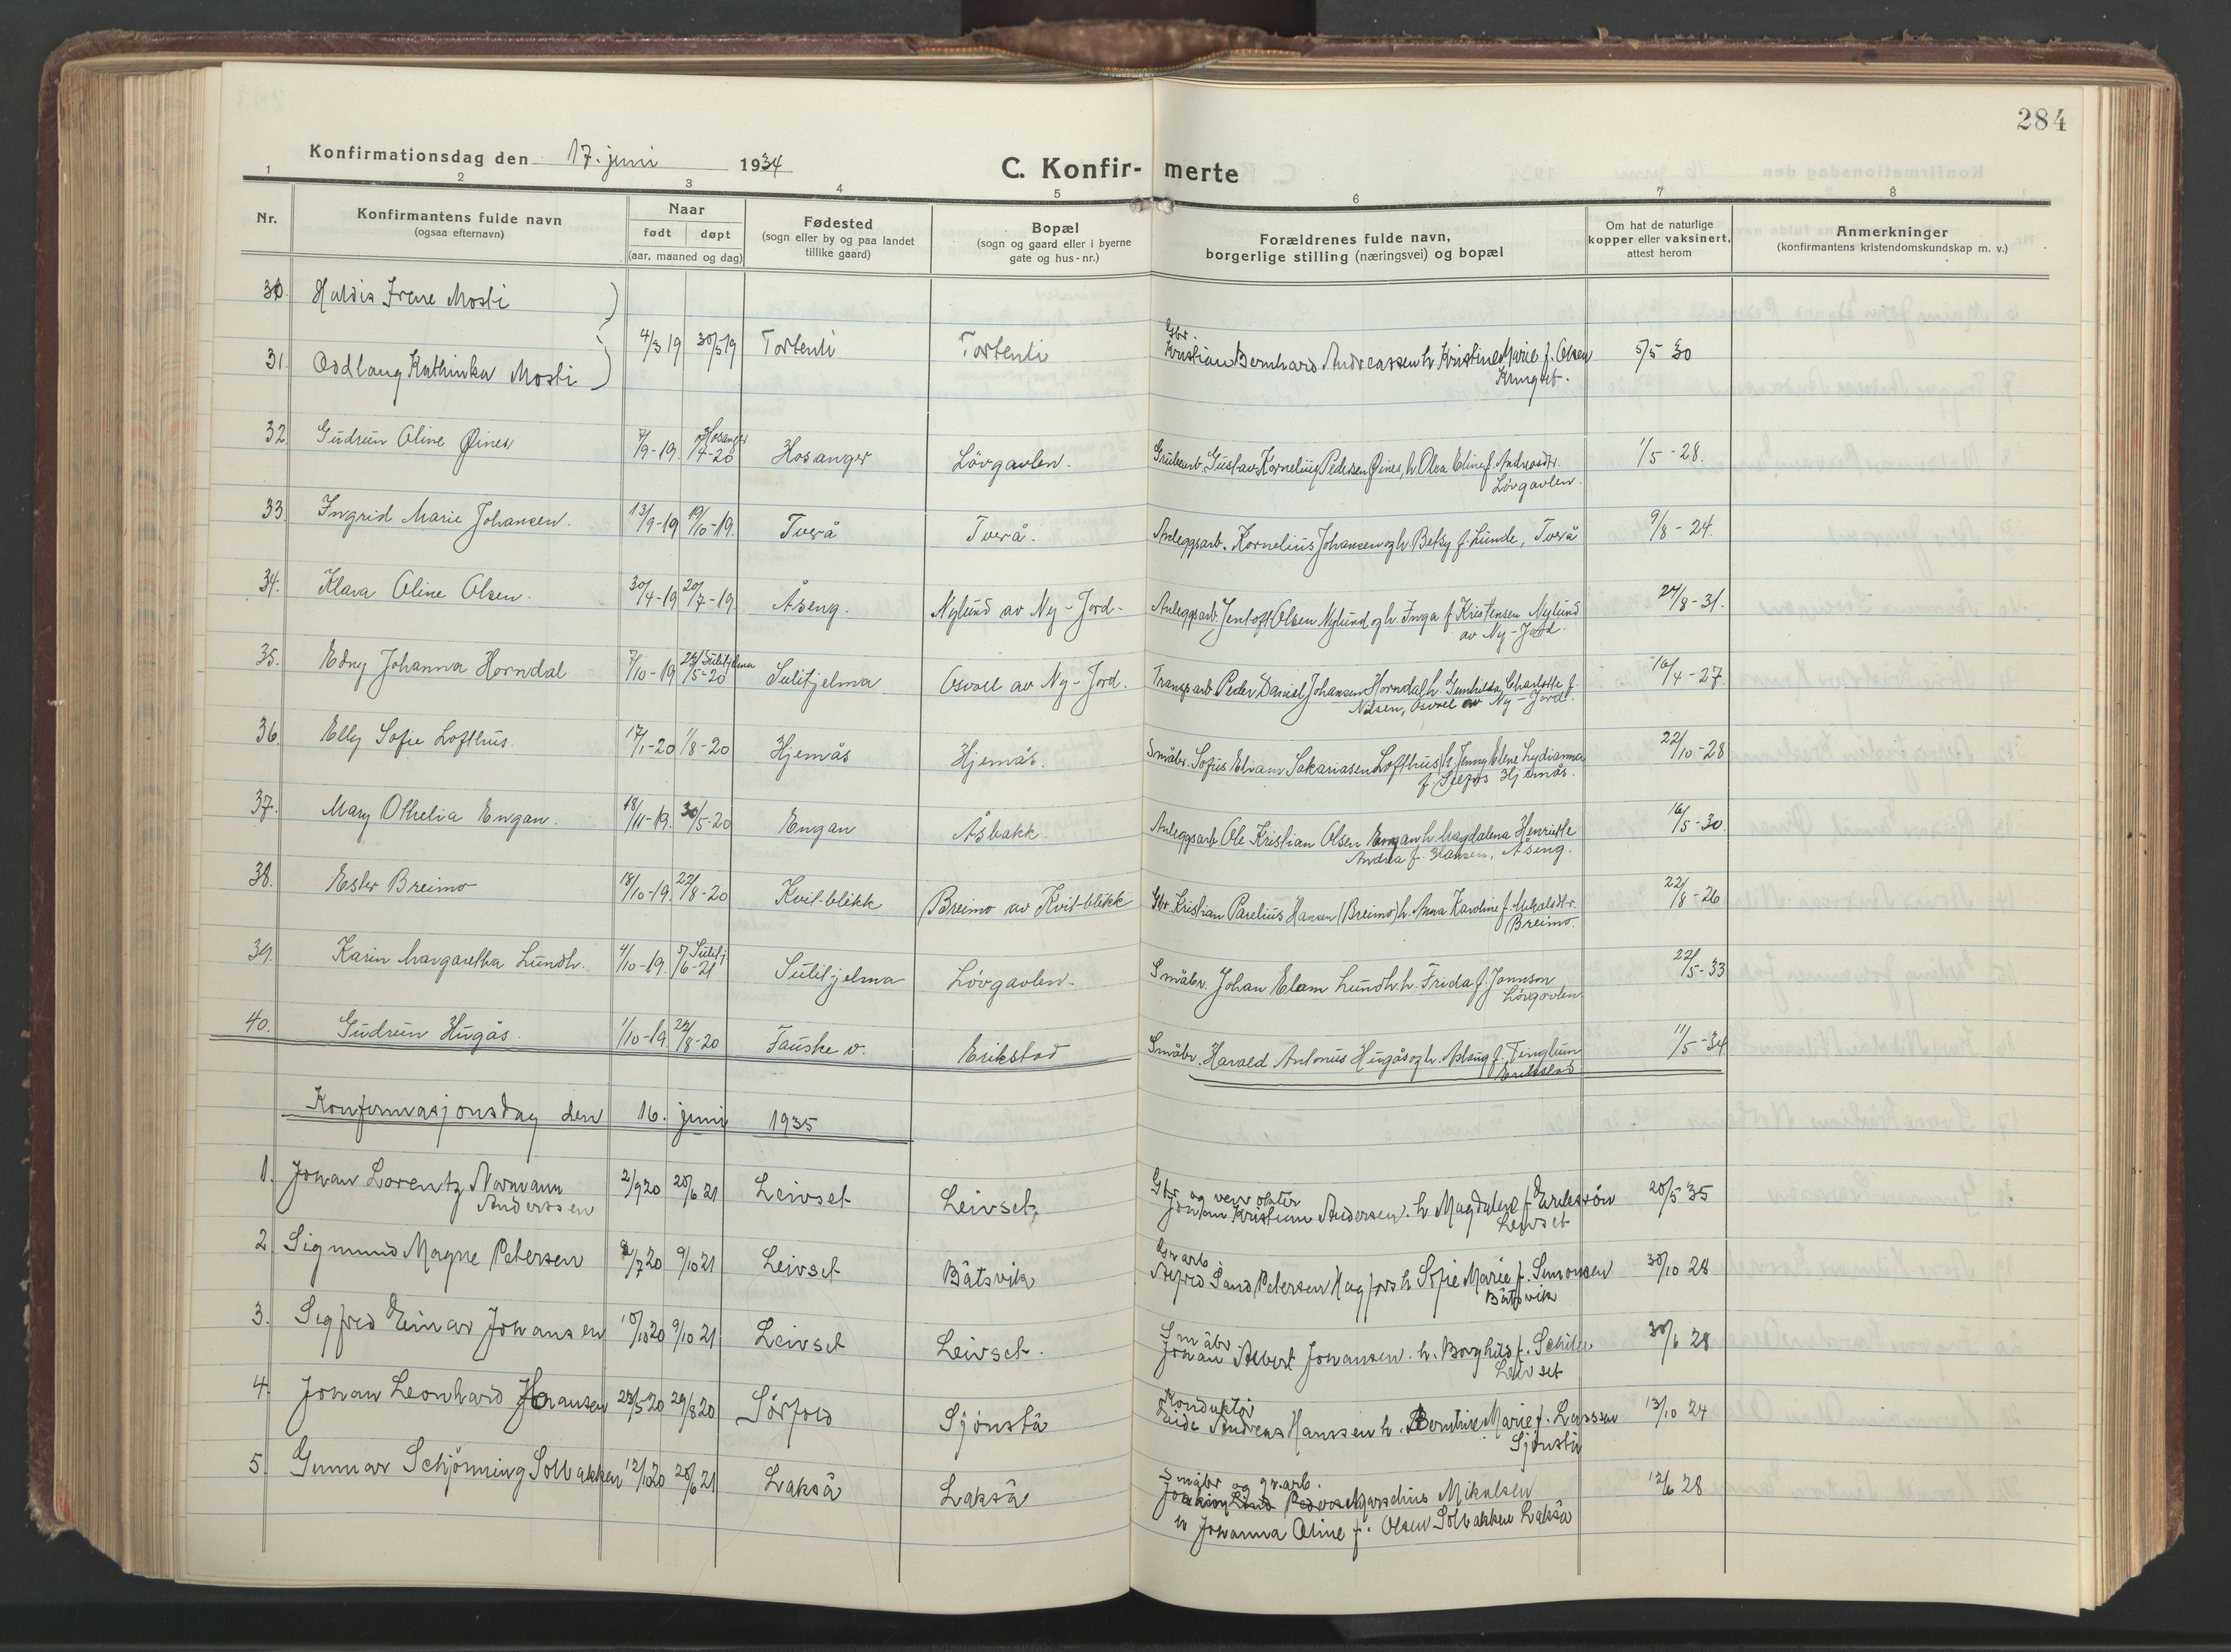 284
Konfirmationsdag den 17. juni 1934
C. Konfir- merte
1 2 3 4 5 6 7 8
Nr.
Konfirmantens fulde navn
(ogsaa efternavn)
Naar
født døpt
(aar, maaned og dag)
Fødested
(sogn eller by og paa landet
tillike gaard)
Bopæl
(sogn og gaard eller i byerne
gate og hus-nr.)
Forældrenes fulde navn,
borgerlige stilling (næringsvei) og bopæl
Om hat de naturlige
kopper eller vaksinert,
attest herom
Anmerkninger
(konfirmantens kristendomskundskap m. v.)
30. Haldis Irene Mosti
31. Oddlaug Kathinka Mosti 4/3 19 30/5 19 Tortenli Tortenli Gbr. Kristian Bernhard Andreassen h. Kristine Marie f. Olsen 5/5 30
32. Gudrun Oline Øines 7/9-19. Hosanger /4-20 Hosanger Lövgavlen. Grubearb. Gustav Kornelius Pedersen Øines, h. Olea Eline f. Andreasdtr. 1/5-28.
Lövgavlen.
33. Ingrid Marie Johansen. 13/9-19 19/10-19. Tverå Tverå. Anleggsarb. Kornelius Johansen og h. Betsy f. Lunde, Tverå 9/8-24.
34. Klara Oline Olsen. 30/4-19 20/7-19. Åseng. Nylund av Ny-Jord- Anleggsarb. Jentoft Olsen Nylund og h. Inga f. Kristensen Nylund 24/8-31.
av Ny-Jord.
35. Edny Johanna Horndal 7/10-19 24/5-20 Sulitjelma Sulitjelma Osvoll av Ny-Jord. Transp.arb. Peder Daniel Johansen Horndal, h. Gunhilda Charlotte f. 16/4-27.
Nilsen, Osvoll av Ny-Jord.
36. Elly Sofie Lofthus. 17/1-20 1/8-20 Hjemås Hjemås. Småbr. Sofus Eliam Sakariasen Lofthus, h. Jenny Elene Lydianna 22/10-28
Hjemås.
37. Mary Othelia Engan. 18/11-19. 30/5-20 Engan Åsbakk. Anleggsarb. Ole Kristian Olsen Engan h. Magdalena Henriette 16/5-30.
Andrea f. Hansen, Åseng.
38. Ester Breimo 18/10-19. 22/8-20 Kvit-blikk Breimo av Kvit-blikk Gbr. Kristian Parelius Hansen (Breimo) h. Anna Karoline f. Mikalsdtr. 22/8-26
Breimo.
39. Karin Margaretha Lundh. 4/10-19. 5/6-21 Sulitj. Sulitjelma Lövgavlen. Småbr. Johan Elam Lundh h. Frida f. Jonnson 22/5-33
Lövgavlen
40. Gudrun Hugås. 1/10-19. 22/8-20 Fauske v. Erikstad Småbr. Harald Antonius Hugås og h. Aslaug f. Tinglum 11/5-34
Erikstad
Konfirmasjonsdag den 16. juni 1935
1. Johan Lorentz Normann 2/9 20 20/6 21 Leivset Leivset, Gbr og 20/5 35
Anderssen Johan Kristian Andersen. h. Magdalene f.
Leivset
2 Sigmund Magne Petersen /7 20 9/10 21 Leivset Båtsvik Alfred Sand Petersen Hagfors h. Sofie Marie f. Simonsen 30/10 28
Båtsvik
3. Sigfred Einar Johansen 10/10 20 9/10 21 Leivset Leivset. Småbr 30/6 28
Johan Albert Johansen. h. Borghild f.
Leivset
4. Johan Leonhard Hansen 23/5 20 29/8 20 Sörfold Sjönstå Konduktör 13/10 24
Andreas Hanssen h. Berntine Marie f. Larssen
Sjönstå
5. Gunnar Schjönning Solbakken 12/10 20 20/6 21 Lakså Lakså Småbr og gr.arb. 12/6 28
Marselius Mikalsen
h Johanna Oline f. Olsen Solbakken Lakså